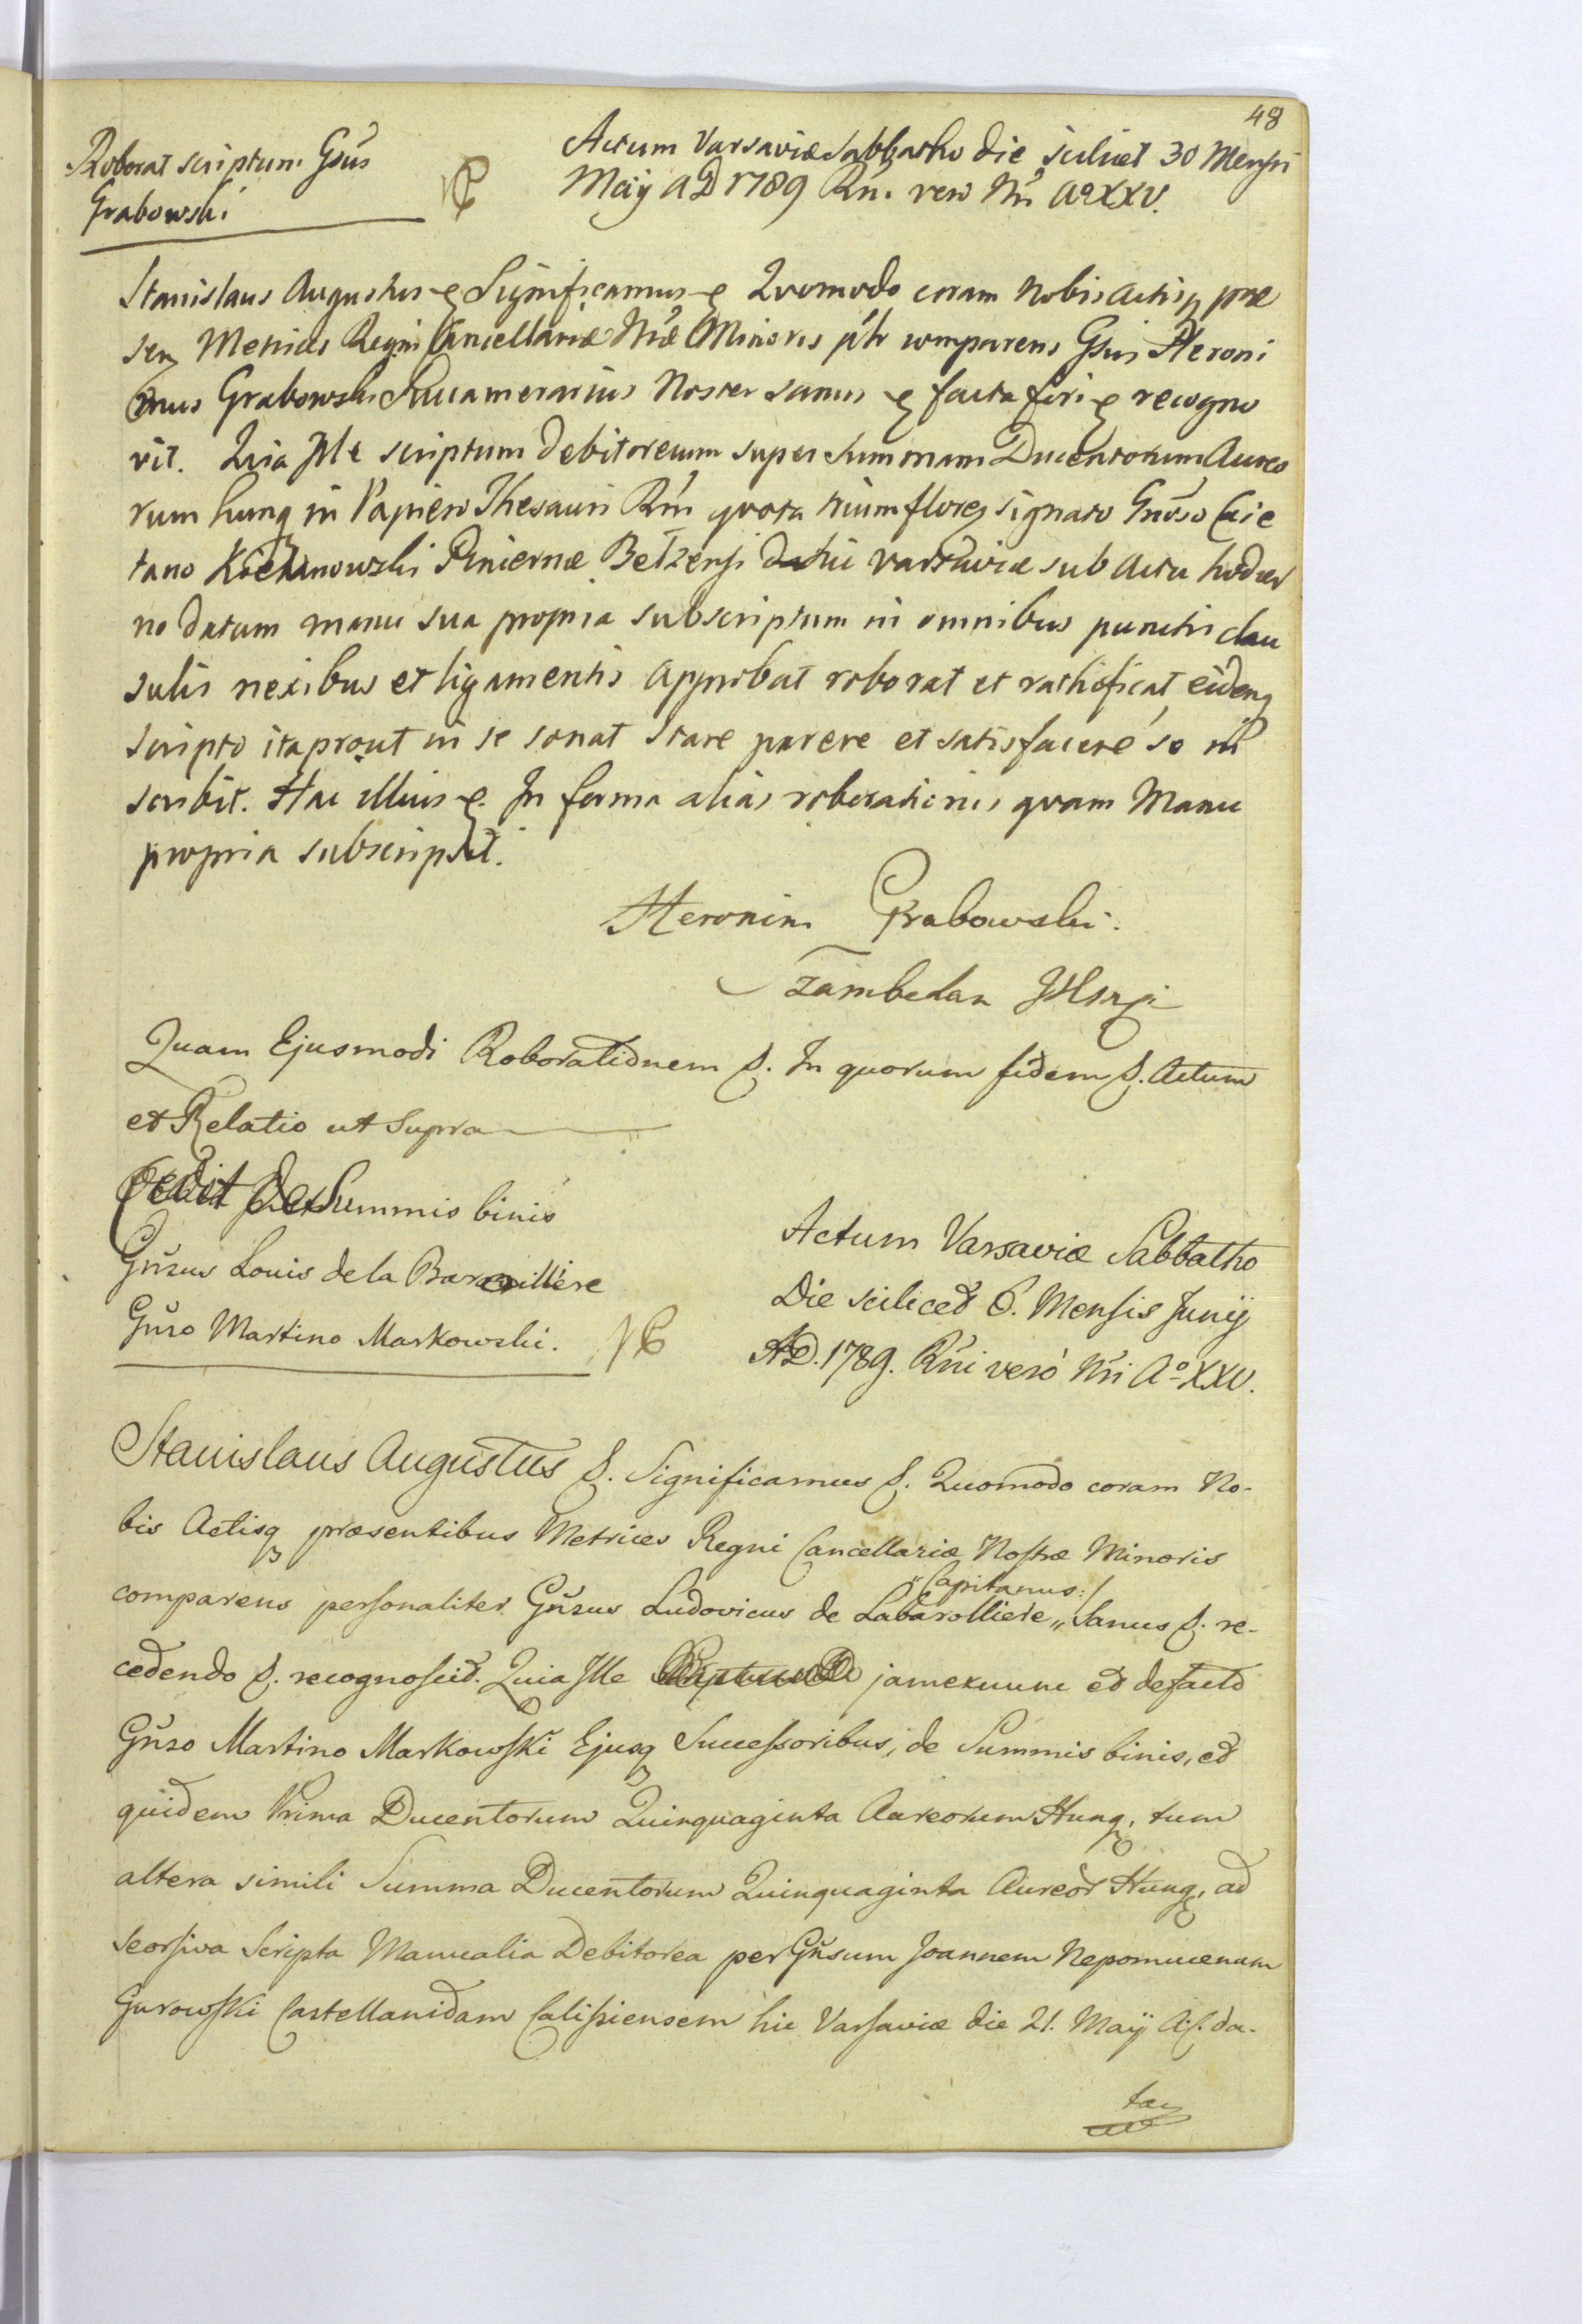 48
Roborat scriptum Gsus
Grabowski
Actum Varsaviæ Sabbatho die scilicet 30 Mensis
Maij AD 1789 Rni. vero Nri Ao XXV.
Stanislaus Augustus Significamus Quomodo coram Nobis Actisq præ
sen Metrices Regni Cancellariæ Nræ Minoris pltr comparens Gsus Heroni
mus Grabowski Succamerarius Noster sanus facta fori recogno
vit. Quia Ille scriptum debitoreum super summam Ducentorum Aureo
rum hung in Papiero Thesauri Rni quota trium flores signato Gnoso Caie
tano Kochanowski Pincernæ Betzensi hic Varsaviæ sub Actu hodier
no datum manu sua propria subscriptum in omnibus punctis clau
sulis nexibus et ligamentis approbat roborat et rathificat, eidemq
scripto itaprout in se sonat stare parere et satisfacere se in
scribit. Hac illius In forma alias roborationis quam Manu
propria subscripsit.
Heronim Grabowski.
Szambelan JKMsci
Quam Ejusmodi Roborationem &. In quorum fidem &. Actum
et Relatio ut Supra
Cedit de Summis binis
Gnsus Louis de la Barollière
Gnso Martino Markowski.
Actum Varsaviæ Sabbatho
Die scilicet 6. Mensis Junij
AD. 1789. Rni vero Nri Ao XXV.
Stanislaus Augustus &. Significamus &. Quomodo coram No-
bis Actisq præsentibus Metrices Regni Cancellariæ Nostræ Minoris
"Capitanus:/
comparens personaliter Gnsus Ludovicus de Labarolliere „ Sanus &. re-
cedendo &. recognoscit. Quia Ille jamexnunc et defacto
Gnso Martino Markowski Ejusq Successoribus, de Summis binis, et
quidem Prima Ducentorum Quinquaginta Aureorum Hung, tum
altera simili Summa Ducentorum Quinquaginta Aureor Hung, ad
seorsiva Scripta Manualia Debitorea per Gnsum Joannem Nepomucenum
Gurowski Castellanidam Calissiensem hic Varsaviæ die 21. Maij A. C. da-
ta